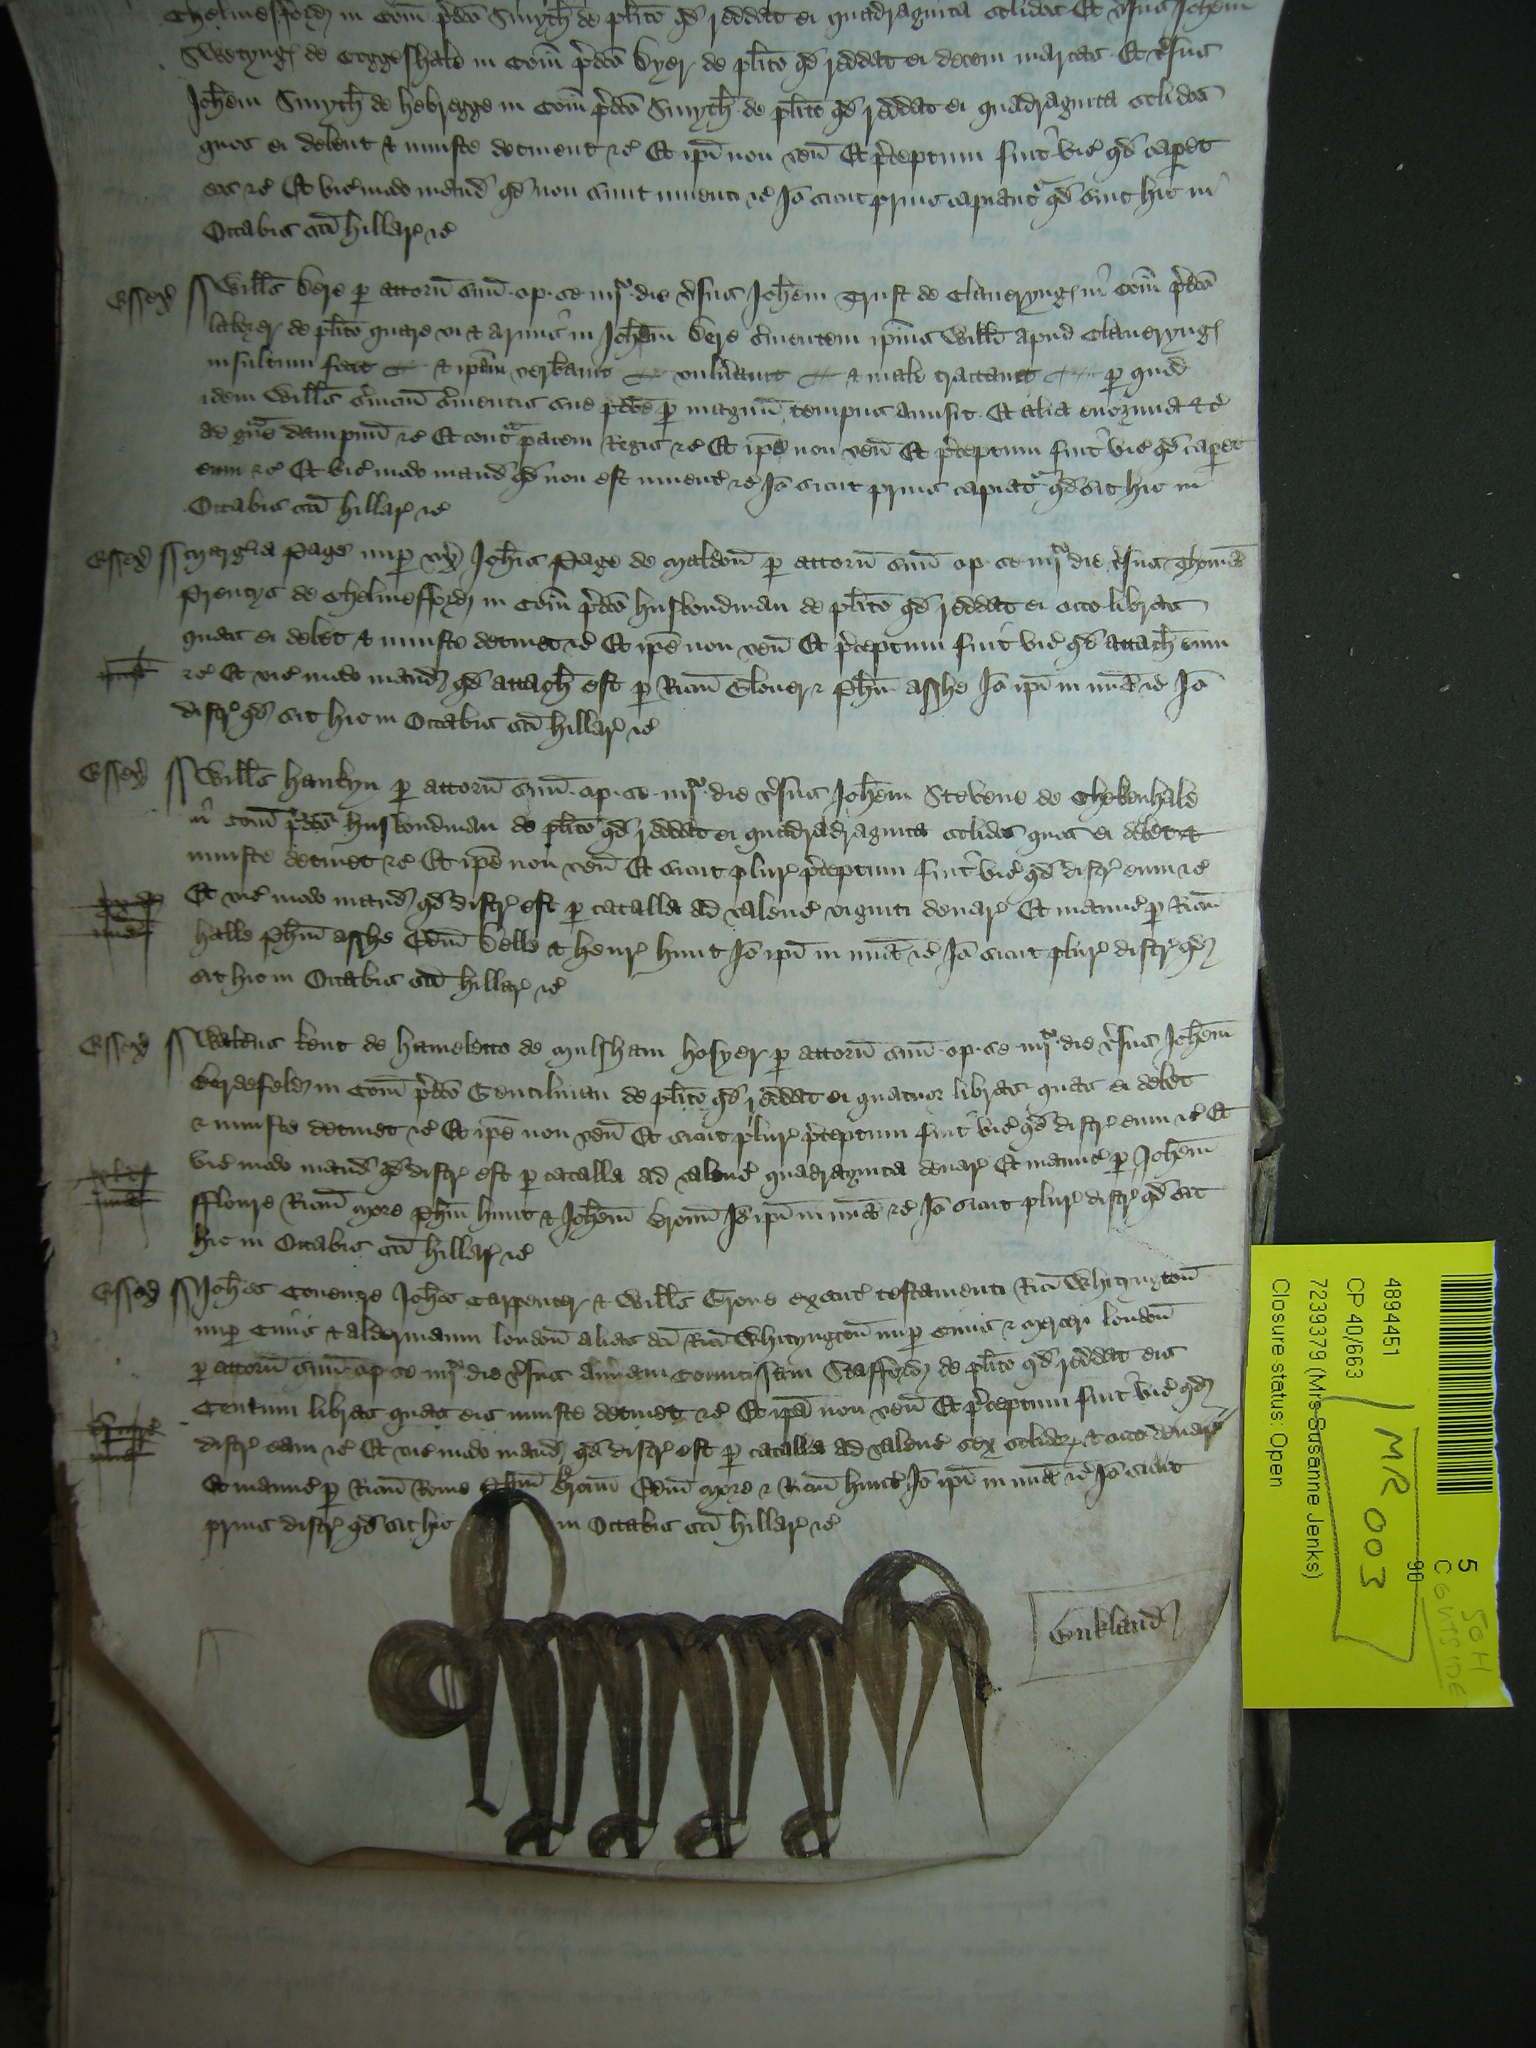 Chelmesford in Com p̄dco Smyth de plito qd reddat ei quadraginta solidos Et v̄sus Johem
de Coggeshale in Com p̄dco dyer de plito qd reddat ei decem marcas Et v̄sus
Johem Smyth de hebregge in Com p̄dco Smyth de plito qd reddat ei quadraginta solidos
quos ei debent & iniuste detinent &c Et ip̄i non ven̄ Et p̄ceptum fuit vic̄ qd caperet
eos &c Et vic̄ modo mand̄ qd non sunt inventi &c Iō sicut prius capiant̄ qd sint hic in
Octabis sc̄i hillar̄ &c
Essex̄ Will̄s Bere p̄ attorn̄ suū op̄ se iiijto die v̄sus Johem Trust de Claveryng in Com p̄dco
laborer de plito quare vi & armis in Johem Bere s̄vientem ip̄ius Will̄i apud Claveryng
insultum fecit & ip̄m verb̄avit vuln̄avit & male tractavit p̄ quod
idem Will̄s s̄vicium s̄vientis sui p̄dc̄i p̄ magnū tempus amisit Et alia enormia &c
ad g̃ve dampnū &c Et contra pacem Regis &c Et ip̄e non ven̄ Et p̄ceptum fuit vic̄ qd caperet
eum &c Et vic̄ modo mand̄ qd non est invent̄ &c Iō sicut prius capiat̄ qd sit hic in
Octabis sc̄i hillar̄ &c
Essex̄ Marḡia Page nup̄ ux̄ Joh̄is Page de Maldon̄ p̄ attorn̄ suū op̄ se iiijto die v̄sus Thomā
Prentys de Chelmesford in Com p̄dco husbondman de plito qd reddat ei octo libras
quas ei debet & iniuste detinet &c Et ip̄e non ven̄ Et p̄ceptum fuit vic̄ qd attach̄ eum
&c Et vic̄ modo mand̄ qd attach̄ est p̄ Ricm̄ Glover & Ph̄m Asshe Iō ip̄i in mīa &c Iō
distr̄ qd sit hic in Octabis sc̄i hillar̄ &c
Essex̄ Will̄s Hankyn p̄ attorn̄ suū op̄ se iiijto die v̄sus Johem Stevene de Chekenhale
in Com p̄dco husbondman de plito qd reddat ei quadradraginta solidos quos ei debet &
iniuste detinet &c Et ip̄e non ven̄ Et sicut plur̄ p̄ceptum fuit vic̄ qd distr̄ eum &c
Et vic̄ modo mand̄ qd distr̄ est p̄ catalla ad valenc̄ viginti denar̄ Et manuc̄ p̄ Ricm̄
halle Ph̄m Asshe Edm̄ Belle & Henr̄ Hunt Iō ip̄i in mīa &c Iō sicut plur̄ distr̄ qd
sit hic in Octabis sc̄i hillar̄ &c
Essex̄ Walt̄us Kent de hameletto de Mulsham hosyer p̄ attorn̄ suū op̄ se iiijto die v̄sus Johem
Berdefeld in Com p̄dco Gentilman de plito qd reddat ei quatuor libras quas ei debet
& iniuste detinet &c Et ip̄e non ven̄ Et sicut plur̄ p̄ceptum fuit vic̄ qd distr̄ eum &c Et
vic̄ modo mand̄ qd distr̄ est p̄ catalla ad valenc̄ quadraginta denar̄ Et manuc̄ p̄ Johem
Ricm̄ More Ph̄m Hunt & Johem Broun Iō ip̄i in mīa &c Iō sicut plur̄ distr̄ qd sit
hic in Octabis sc̄i hillar̄ &c
Essex̄ Joh̄es Coventre Joh̄es Carpenter & Will̄s Grove execut̄ testamenti Ric̄i Whityngton̄
nup̄ Civis & Aldermanni london̄ alias dc̄i Ric̄i Whityngton̄ nup̄ Civis & mercer̄ london̄
p̄ attorn̄ suū op̄ se iiijto die v̄sus Annam Comitissam Stafford de plito qd reddat eis
Centum libras quas eis iniuste detinet &c Et ip̄a non ven̄ Et p̄ceptum fuit vic̄ qd
distr̄ eam &c Et vic̄ modo mand̄ qd distr̄ est p̄ catalla ad valenc̄ sex solidor̄ & octo denar̄
Et manuc̄ p̄ Ricm̄ Rome Broun̄ Edm̄ More & Ricm̄ Hunte Iō ip̄i in mīa &c Iō sicut
prius distr̄ qd sit hic in Octabis sc̄i hillar̄ &c
4894451
CP 40/663
7239379 (Mrs Susanne Jenks)
Closure status: Open
MR 003
5
C
98
SOH
OUTSIDE